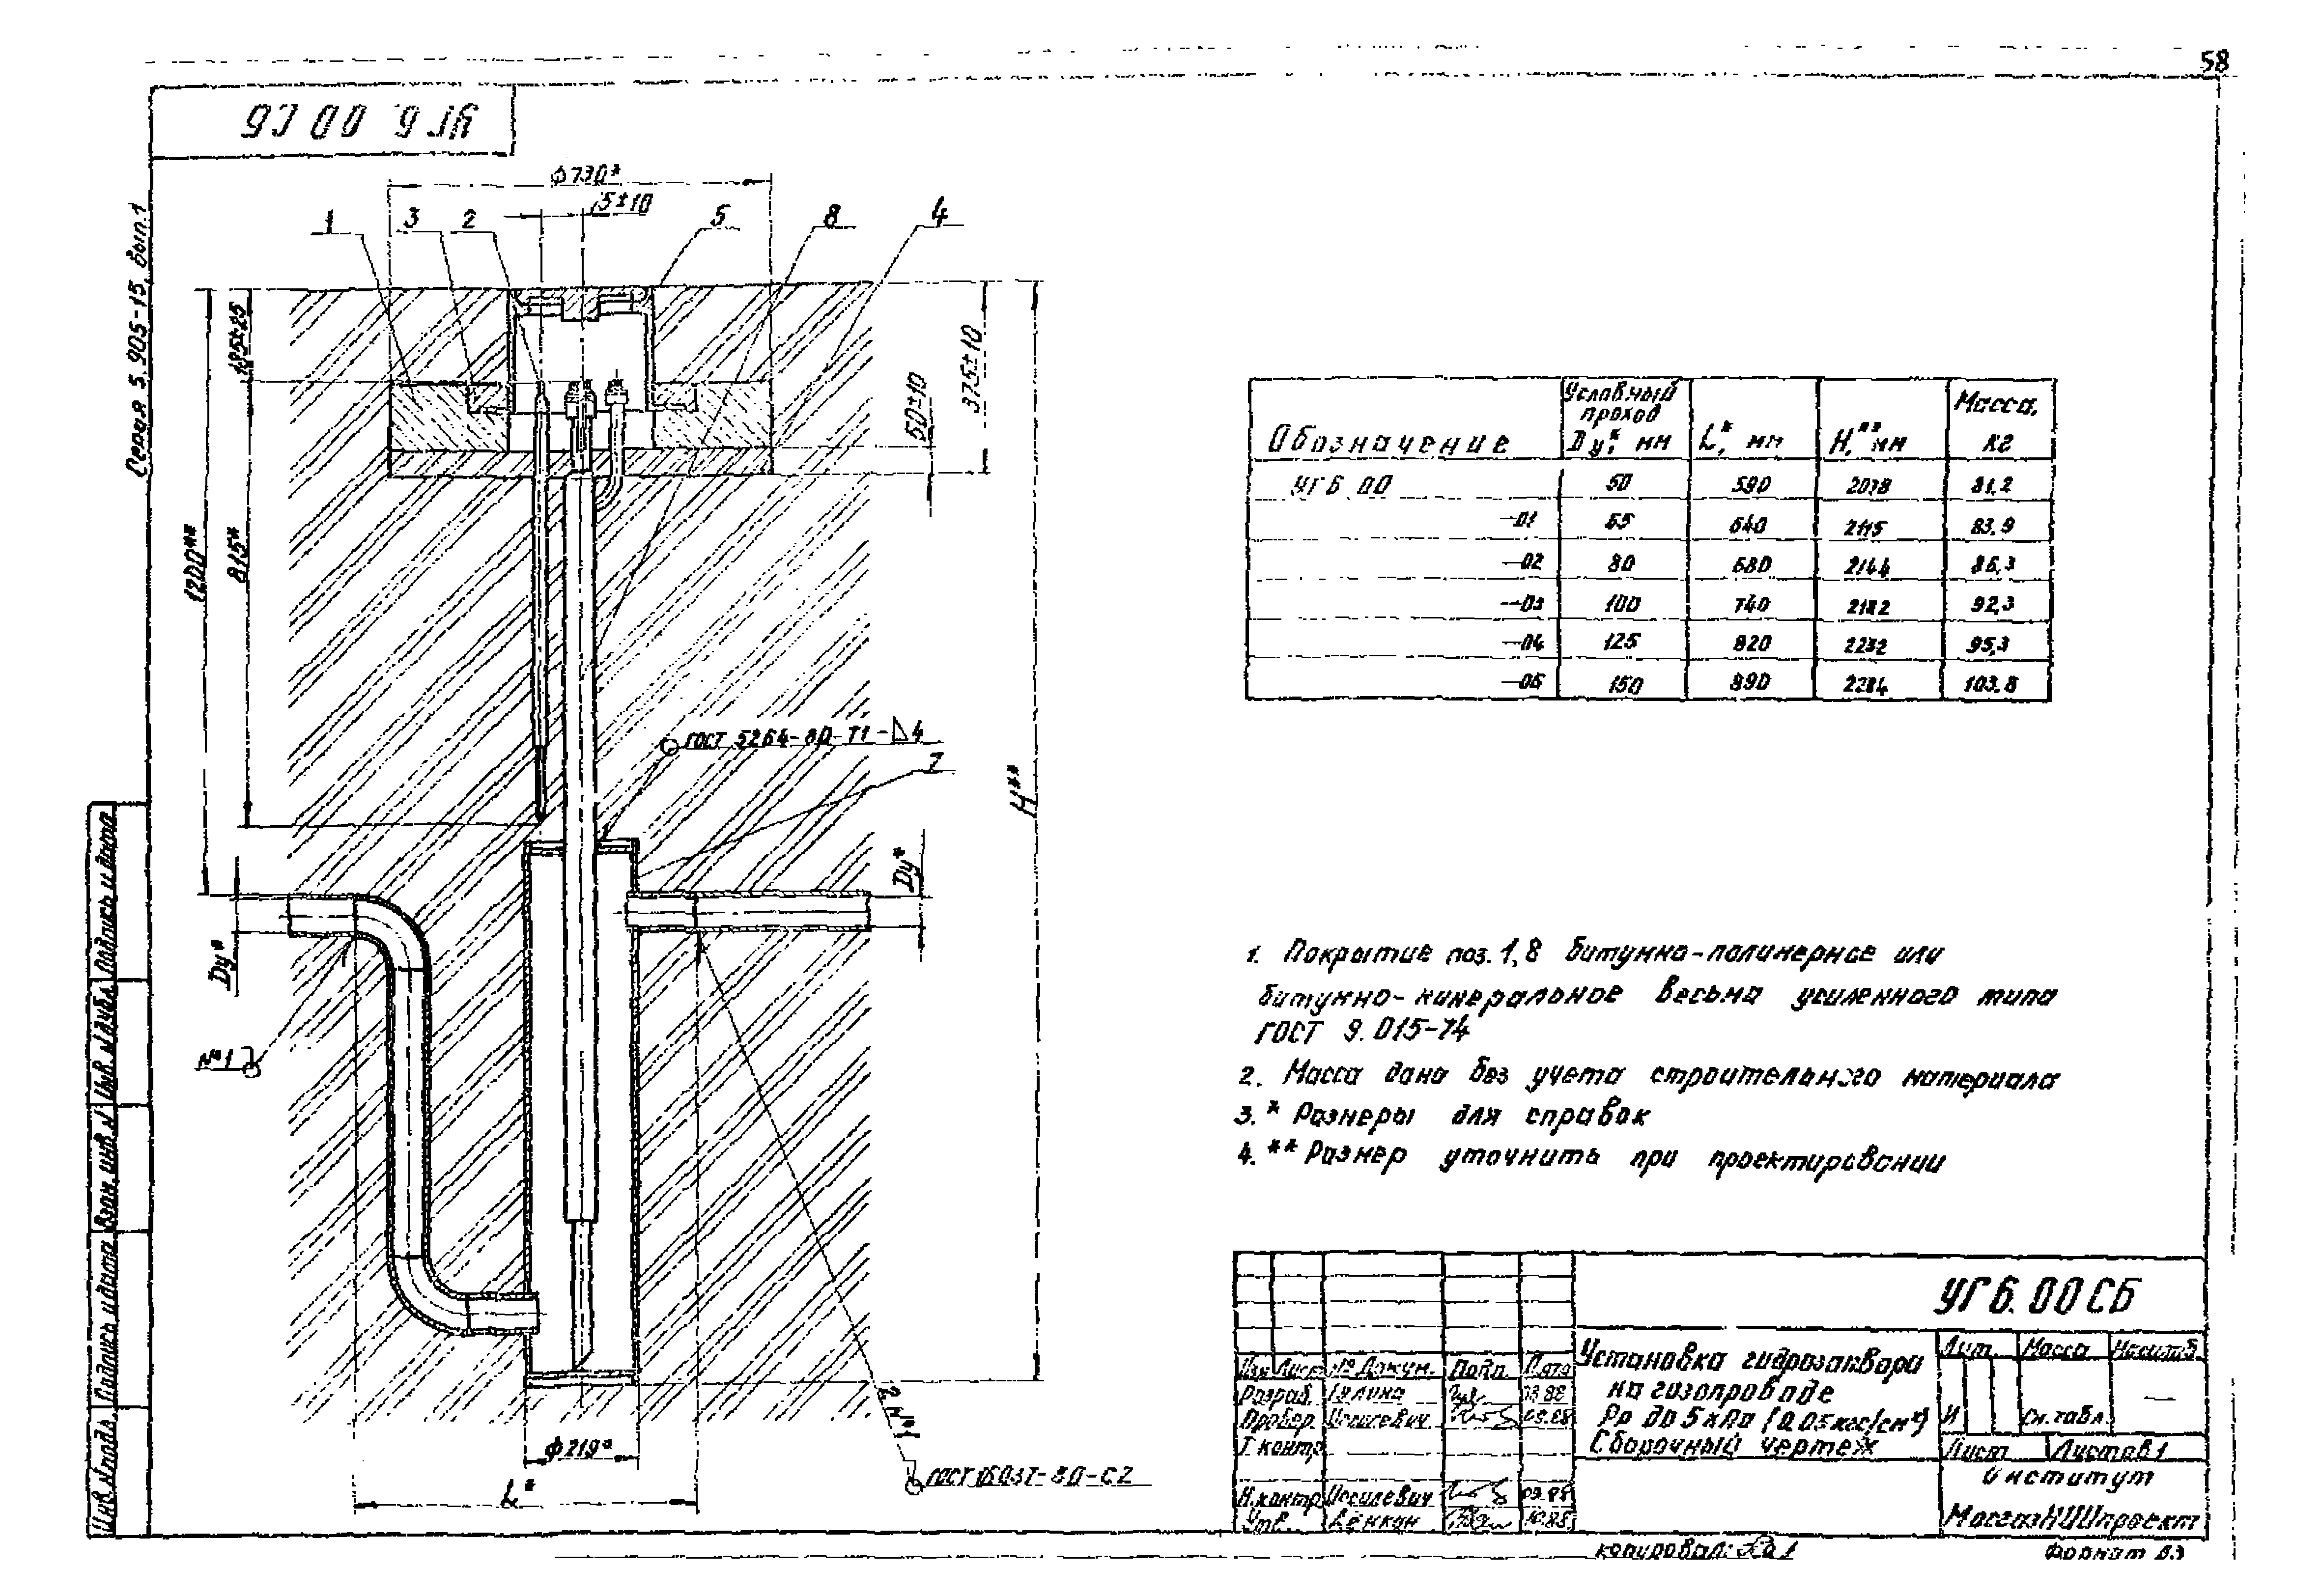 58
УГ6.00СБ
Серия 5.905-15 вып.1
ϕ730*
75±10
1
3
2
5
8
4
185±25
50±10
375±10
1200**
815*
H**
ГОСТ 5264-80-Т1-⊿4
7
Dу*
Dу*
№1
2 №1
ϕ219*
L*
ГОСТ 16037-80-С2
Обозначение Условный проход Dу*, мм L*, мм H**, мм Масса, кг
УГ6.00 50 590 2078 81,2
-01 65 640 2115 83,9
-02 80 680 2144 86,3
-03 100 740 2182 92,3
-04 125 820 2232 95,3
-05 150 890 2284 103,8
1. Покрытие поз.1,8 битумно-полимерное или
битумно-минеральное весьма усиленного типа
ГОСТ 9.015-74
2. Масса дана без учета строительного материала
3.* Размеры для справок
4.** Размер уточнить при проектировании
УГ6.00СБ
Установка гидрозатвора
на газопроводе
Рр до 5 кПа (0,05 кгс/см²)
Сборочный чертеж
Лит. Масса Масштаб
И См.табл. —
Лист Листов 1
Институт
МосгазНИИпроект
Изм Лист № Докум. Подп. Дата
Разраб. Гулина 09.88
Провер. Иосилевич 09.88
Т.контр
Н.контр Иосилевич 09.88
Утв. 10.88
Инв.№подл. Подпись и дата Взам.инв.№ Инв.№дубл. Подпись и дата
Копировал:
Формат А3